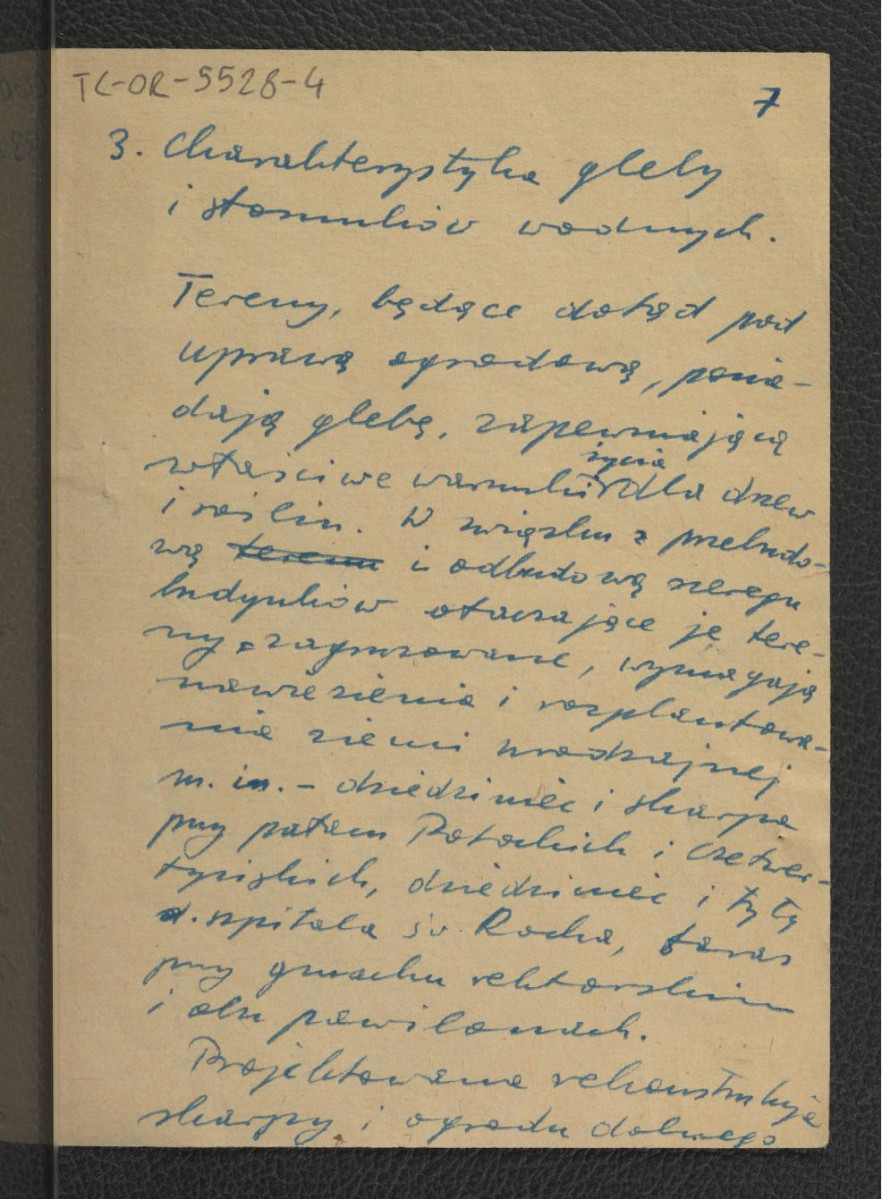 TL-OR-5528-4
7
3. Charakterystyka gleby
i stosunków wodnych.
Tereny, będące dotąd pod
uprawą ogrodową, posia-
dają glebę, zapewniającą
właściwe warunki życia dla drzew
i roślin. W związku z przebudo-
wą terenu i odbudową szeregu
budynków otaczające je tere-
ny zagruzowane, wymagają
nawiezienia i rozplantowa-
nia ziemi urodzajnej
m. in. – dziedziniec i skarpa
przy pałacu Potockich i Czetwer-
tyńskich, dziedziniec i tyły
d. szpitala św Rocha, taras
przy gmachu rektorskim
i obu pawilonach.
Projektowana rekonstrukcja
skarpy i ogrodu dolnego